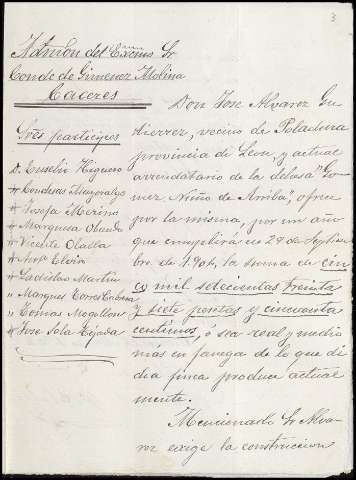 3
Admón del Excmo Sr
Conde de Gimenez Molina
Cáceres
Sres partícipes
D. Eusebio Higuero
" Condesa Mayoralgo
" Josefa Merino
" Marquesa Obando
" Vicente Olalla
" Ladislao Martín
" Marques Torres Cabrera
" Tomas Mogollon
" Jose Sola Tejada
Don Jose Alvarez Gu
tierrez, vecino de Poladura
provincia de Leon, y actual
arrendatario de la dehesa "Go
mez Nuño de Arriba", ofrece
por la misma, por un año
que cumplirá en 29 de Septiem
bre de 1904, la suma de cin
co mil setecientas treinta
y siete pesetas y cincuenta
centimos, ó sea real y medio
más en fanega de lo que di
cha finca produce actual
mente.
Mencionado Sr Alva
rez exige la construccion